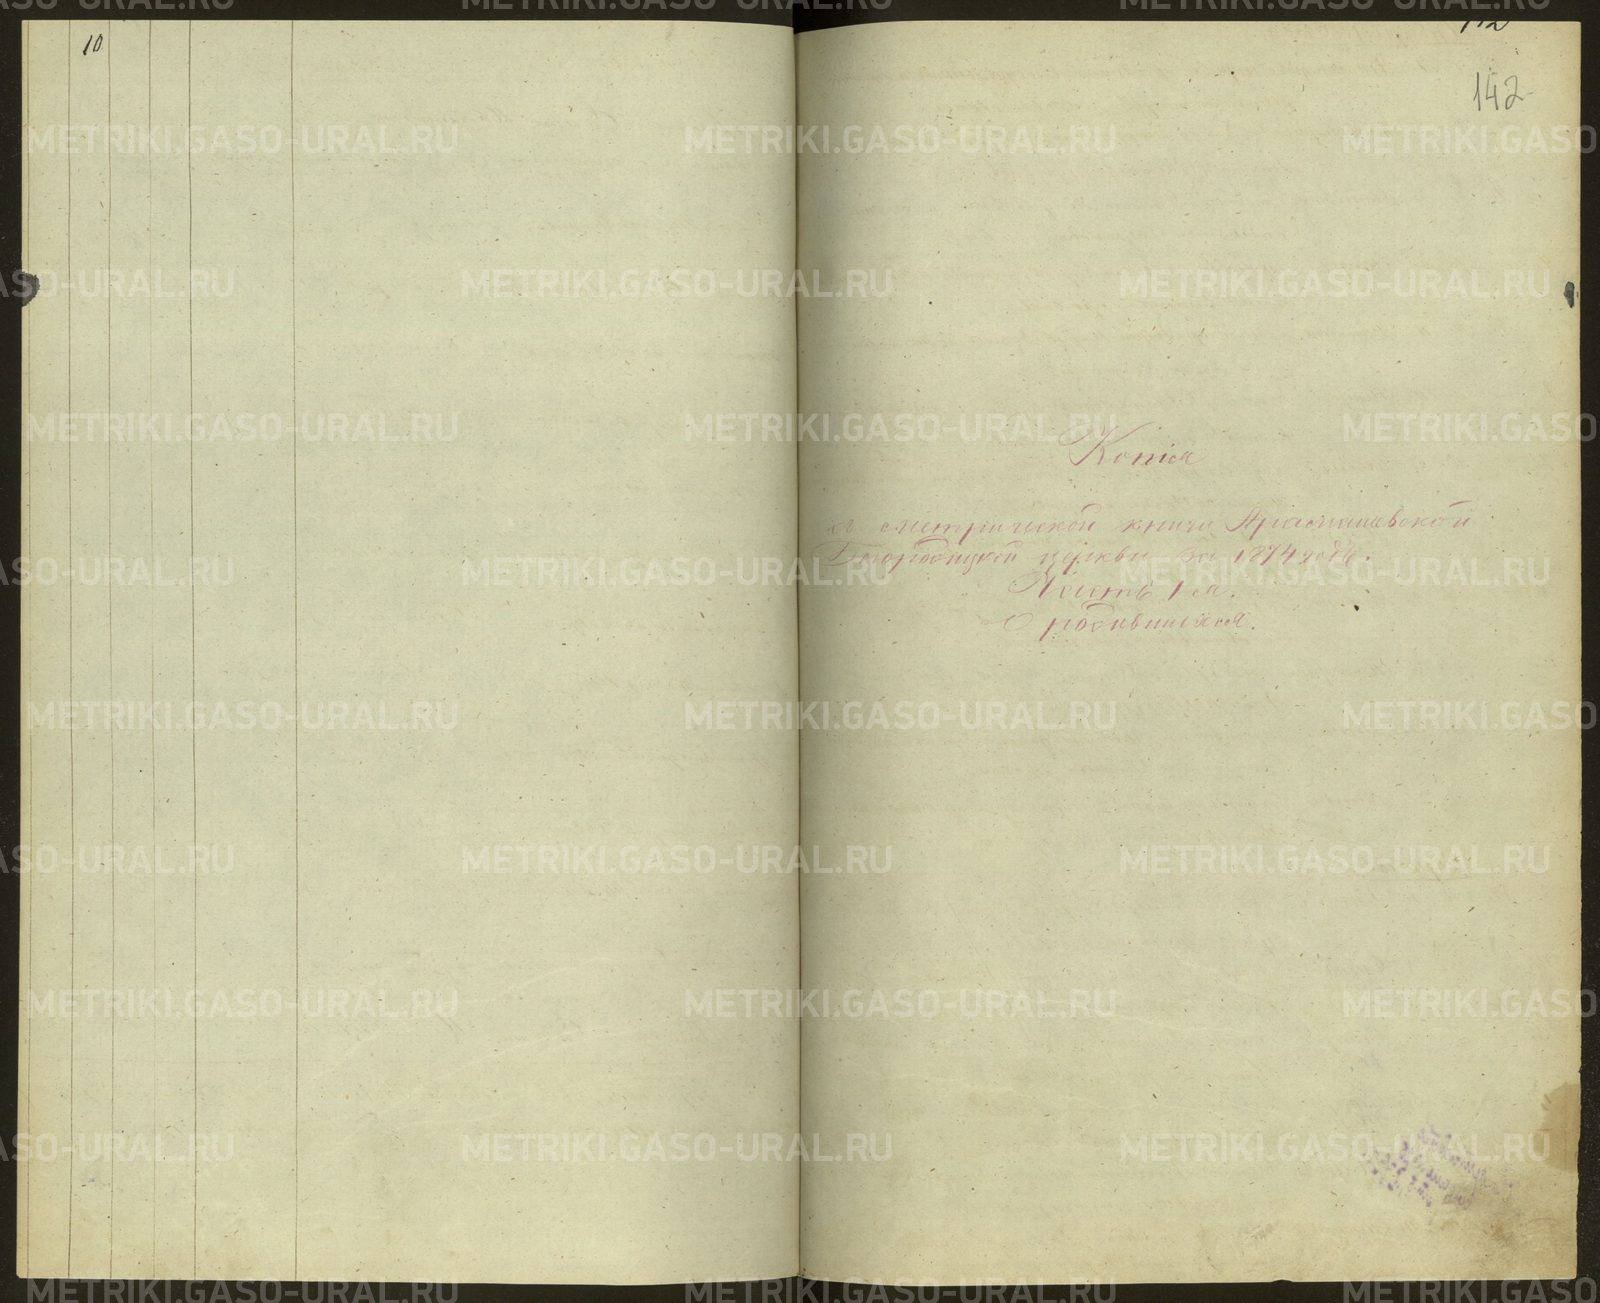 10
142
142
Копія
съ метрической книги Арамашевской
Богородицкой церкви за 1874 годъ.
Часть 1-я.
О родившихся.
METRIKI.GASO-URAL.RU